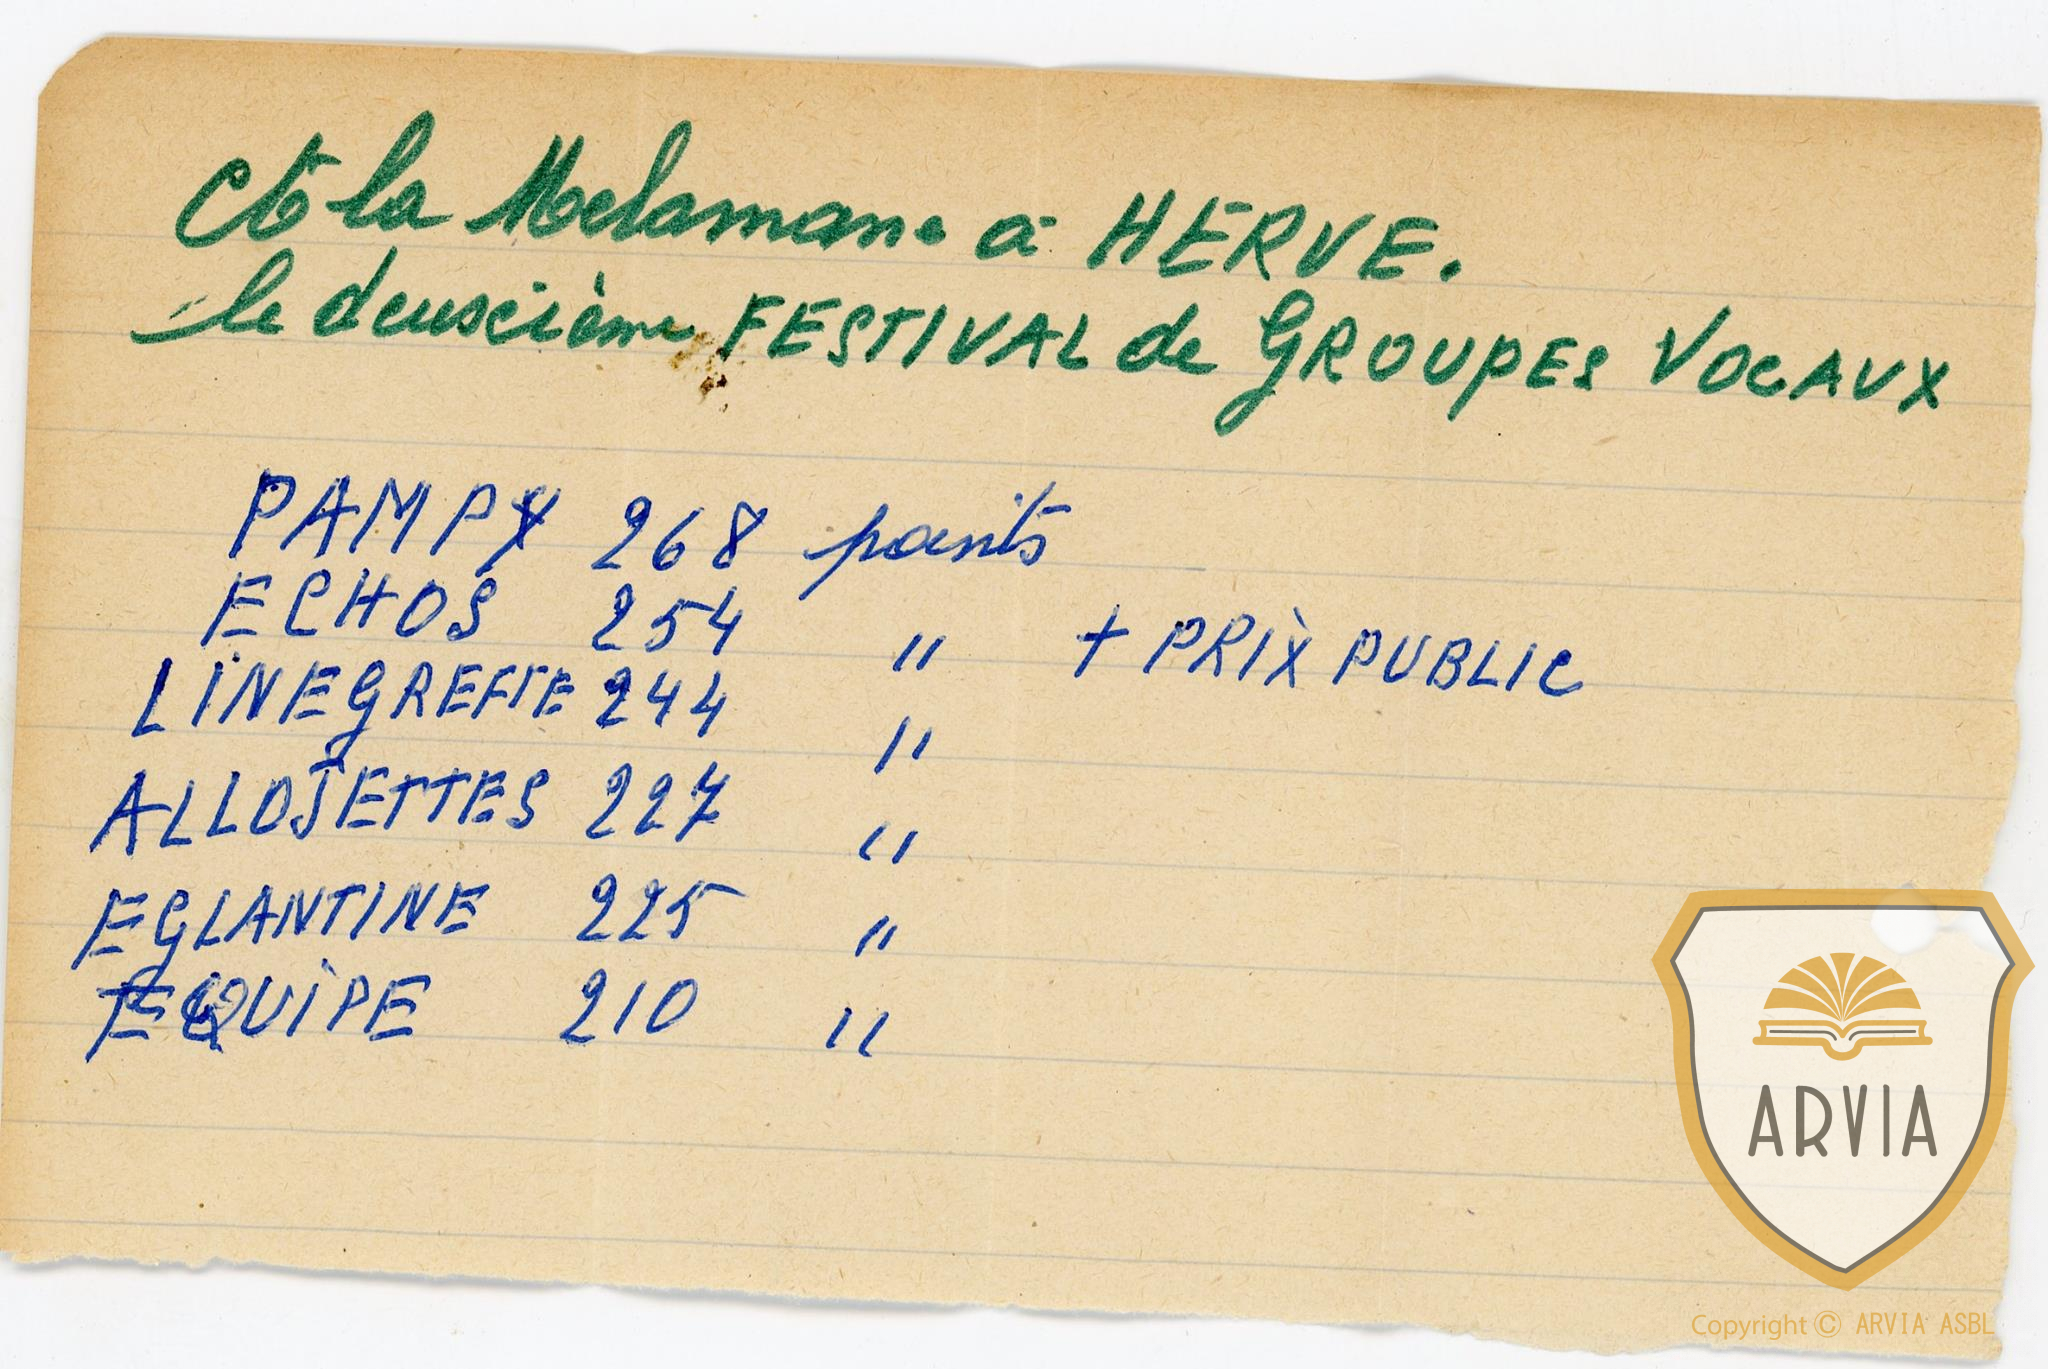 à la Melamane à HERVE.
le deuxcième FESTIVAL de GROUPES VOCAUX
PAMPY 268 points
ECHOS 254 " + PRIX PUBLIC
LINEGREFTE 244 "
ALLOJETTES 227 "
EGLANTINE 225 "
EQUIPE 210 "
ARVIA
Copyright © ARVIA ASBL